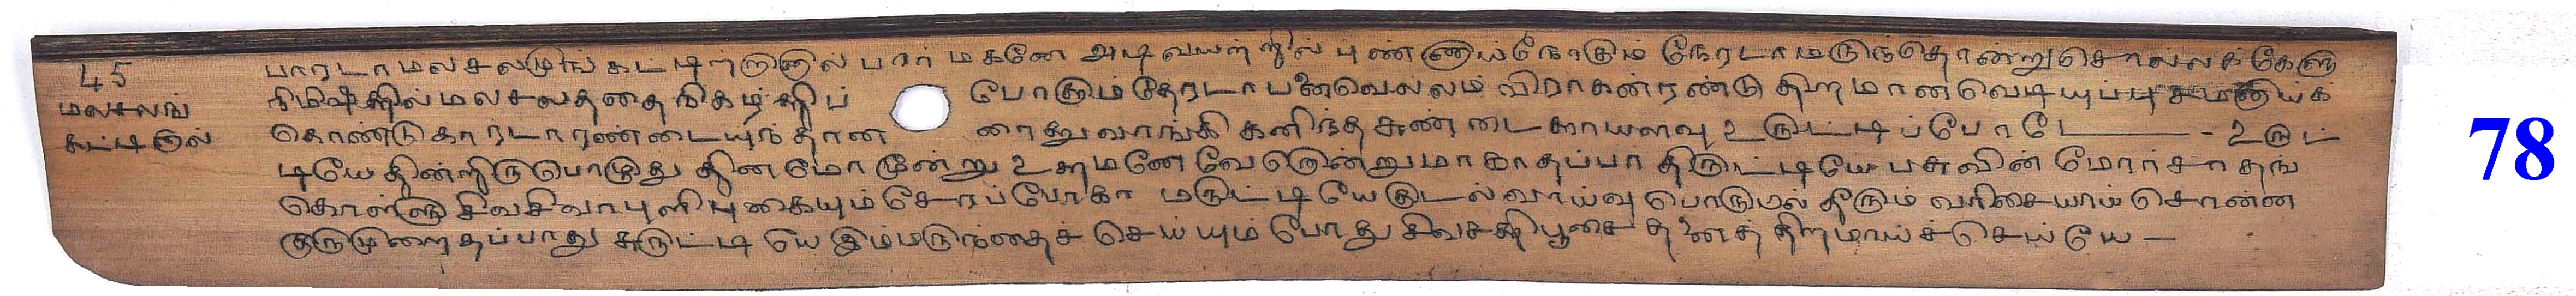 45
மலசலங்
கட்டினால்
பாரடாமலசலமுங் கட்டிற்றானால் பார் மகனே அடிவயற்றில் புண்ணாய்நோகும் நேரடாமருந்தொன்று சொல்லக்கேளு
நிமிஷத்தில் மலசலத்தை நிகழ்த்திப் போடும் தேரடாபனைவெல்லம் விராகன்ரண்டு திறமான வெடியுப்பு
கொண்டு காரடாரண்டையுந்தான ரைத்துவாங்கி கனிந்த சுண்டைகாயளவு உருட்டிப்போடே - உருட்
டியே தின்றிருபொழுது தினமோமூன்று உசுமனே வேறொன்றுமாகாதப்பா திருட்டியே பசுவின் மோர்சாதங்
கொள்ளு சிவசிவா புளிபுகையும் சேரப்போகா மருட்டியேகுடல்வாய்வு பொருமல் தீரும் வரிசையாய் சொன்ன
குருமுறை தப்பாது சுருட்டியே இம்மருந்தைச் செய்யும்போது சிவசக்திபூசைதனைத் திறமாய்ச்செய்யே -
78